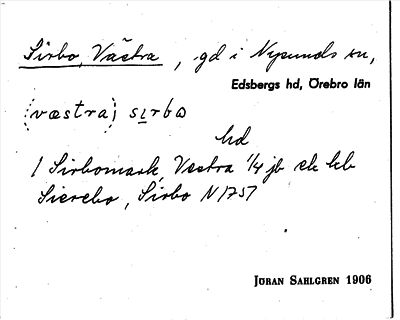 Sirbo, Västra, gd i Nysunds sn,
Edsbergs hd, Örebro län
(væstra) sırbo
hd
/ Sirbomark, Vestra 1/4 jb
Sierebo, Sirbo N 1757
JÖRAN SAHLGREN 1906